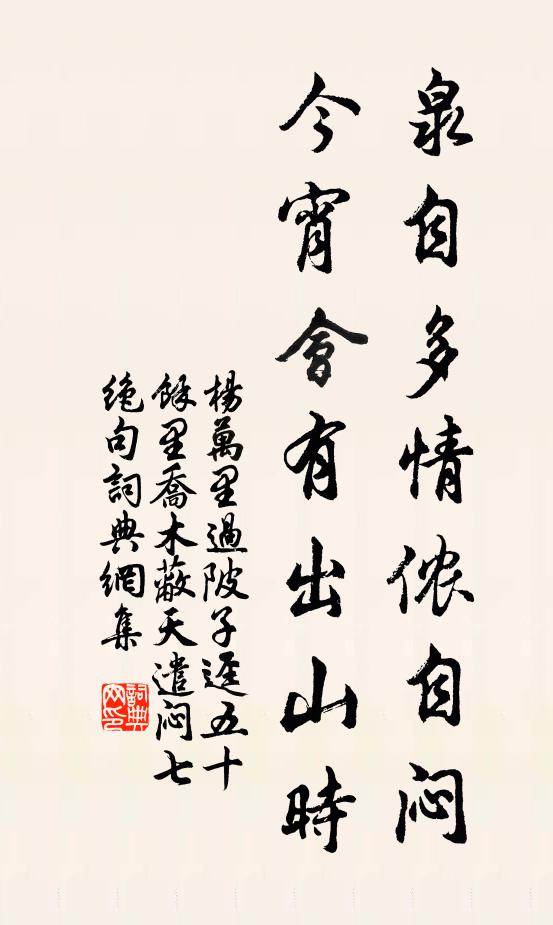 泉自多情侬自闷
今宵會有出山時
楊萬里過陂子逕五十
餘里喬木蔽天遣闷七
絶句詞典網集
詞典
网印